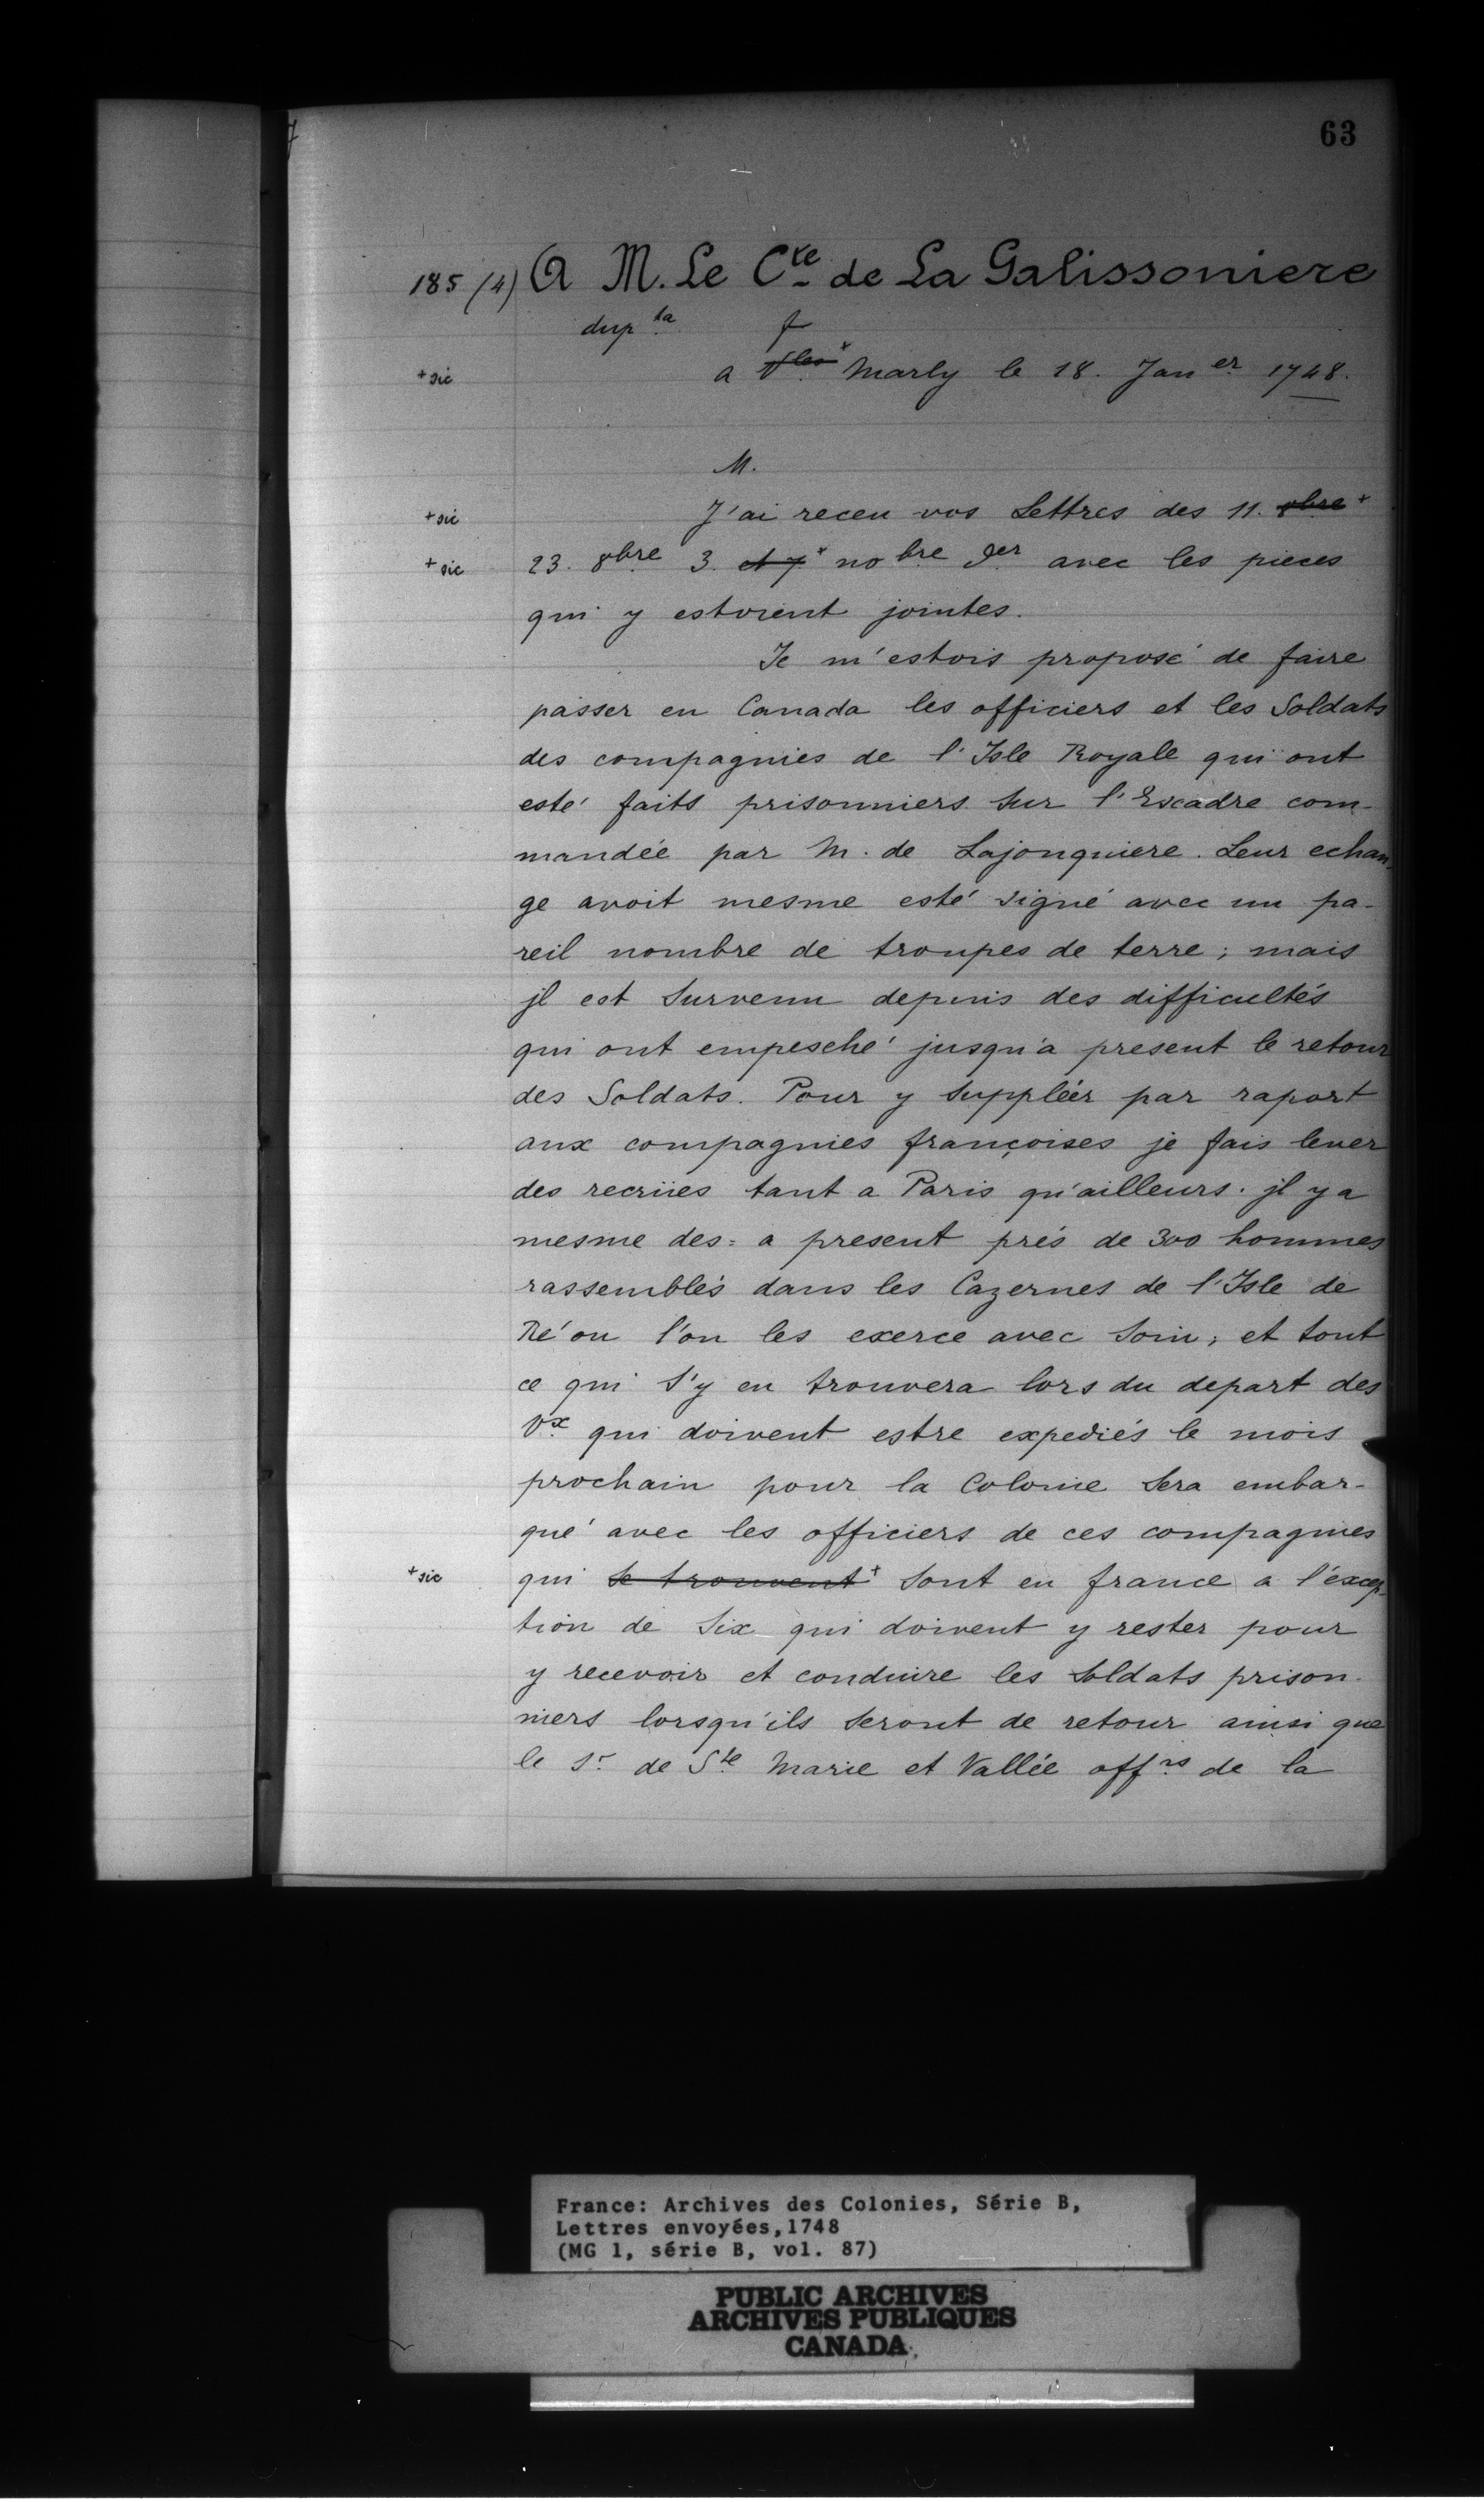 63
185 (4) A M. Le Cte de La Galissoniere
dup ta f
+ sic a Vles + Marly le 18. Jan er 1748.
M.
+ sic J'ai receu vos Lettres des 11. 8bre +
+ sic 23. 8bre 3. et 7 + nobre der avec les pieces
qui y estoient jointes.
Je m'estois proposé de faire
passer en Canada les officiers et les Soldats
des compagnies de l'Isle Royale qui ont
esté faits prisonniers sur l'Escadre com-
mandée par M. de Lajonquiere. Leur echan-
ge avoit mesme esté signé avec un pa-
reil nombre de troupes de terre; mais
jl est survenu depuis des difficultés
qui ont empesché jusqu'a present le retour
des Soldats. Pour y suppléer par raport
aux compagnies françoises je fais lever
des recrües tant a Paris qu'ailleurs. jl y a
mesme des=a present prés de 300 hommes
rassemblés dans les Cazernes de l'Isle de
Ré ou l'on les exerce avec Soin; et tout
ce qui s'y en trouvera lors du depart des
Vx qui doivent estre expediés le mois
prochain pour la Colonie Sera embar-
qué avec les officiers de ces compagnies
+ sic qui se trouvent + sont en france a l'éxcep-
tion de Six qui doivent y rester pour
y recevoir et conduire les Soldats prison-
niers lorsqu'ils seront de retour ainsi que
le Sr de Ste Marie et Vallée offrs de la
France: Archives des Colonies, Série B,
Lettres envoyées,1748
(MG 1, série B, vol. 87)
PUBLIC ARCHIVES
ARCHIVES PUBLIQUES
CANADA